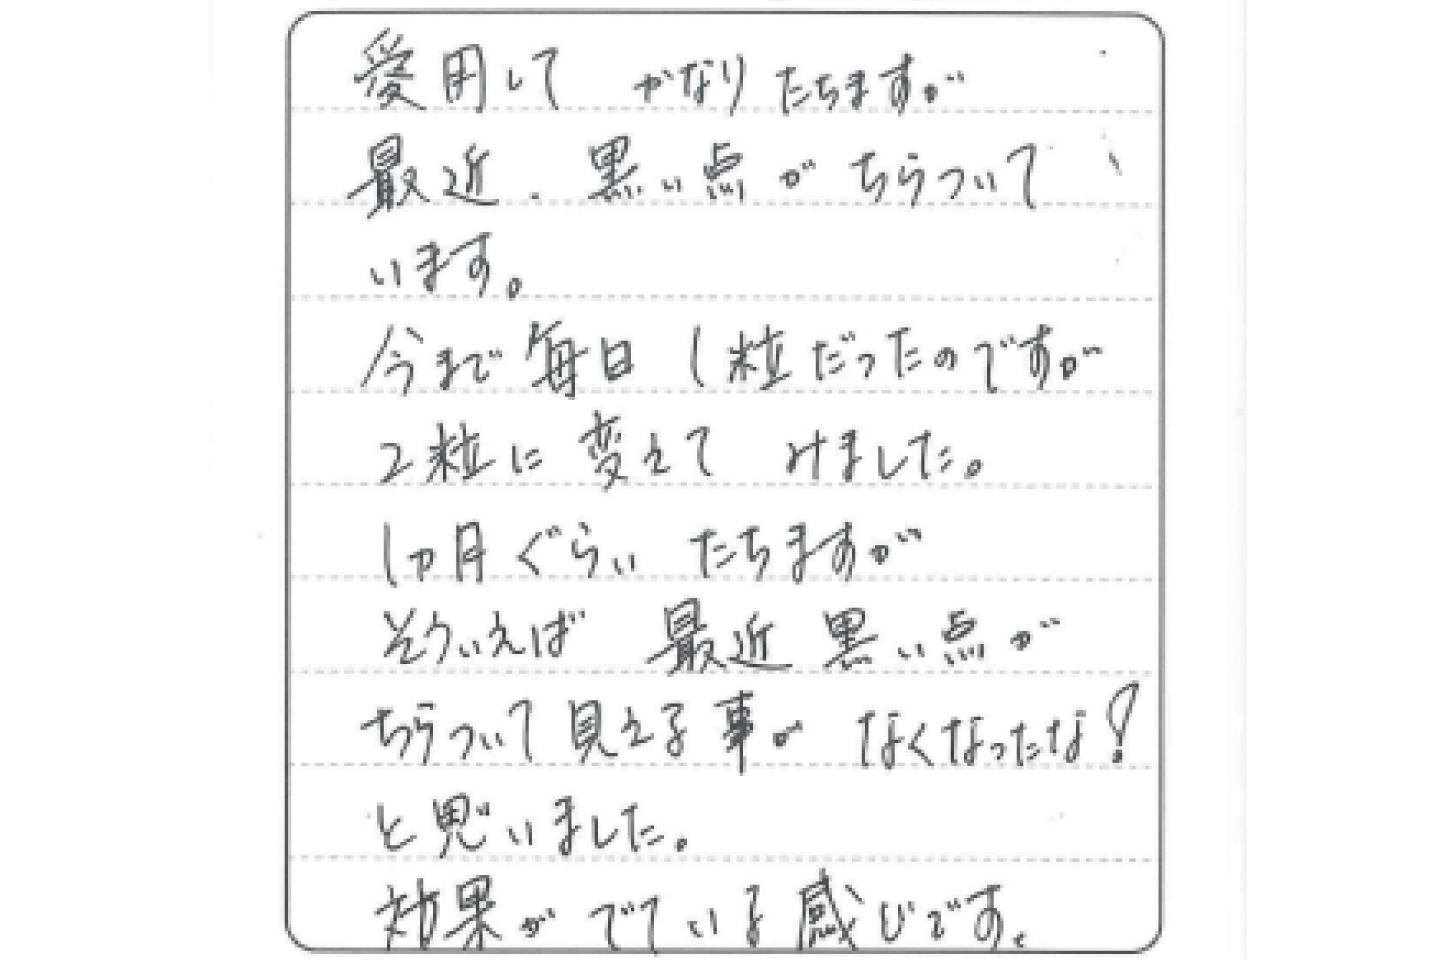 愛用して かなりたちますが
最近、黒い点がちらついて
います。
今まで毎日1粒だったのですが
2粒に変えて みました。
1ヵ月ぐらい たちますが
そういえば 最近黒い点が
ちらついて見える事が なくなったな!
と思いました。
効果がでている感じです。